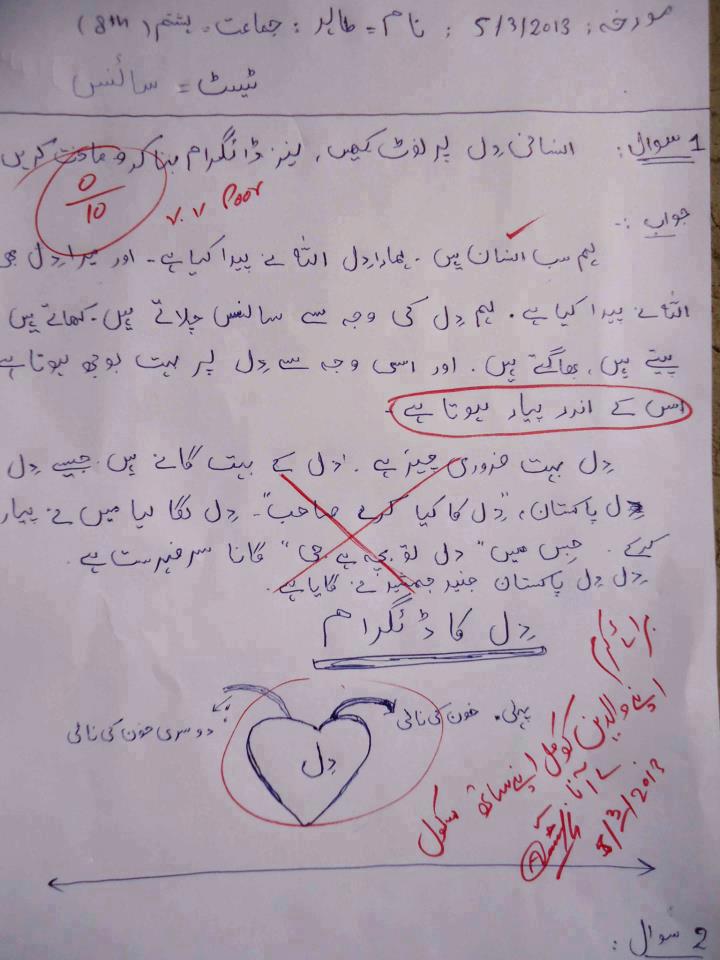 مورخہ: 5/3/2013 : نام = طاہر : جماعت = ہشتم (8th)
ٹیسٹ = سائنس
سوال 1: انسانی دِل پر نوٹ لکھیں، نیز ڈائگرام بنا کر وضاحت کریں
0/10
v.v Poor
جواب :-
ہم سب انسان ہیں۔ ہمارا دِل اللّٰہ نے پیدا کیا ہے۔ اور میرا دِل بھی
اللّٰہ نے پیدا کیا ہے۔ ہم دِل کی وجہ سے سانس چلاتے ہیں۔ کھاتے ہیں
پیتے ہیں، بھاگتے ہیں۔ اور اسی وجہ سے دِل پر بہت بوجھ ہوتا ہے
اس کے اندر پیار ہوتا ہے۔
دِل بہت ضروری چیز ہے۔ دل کے بہت گانے ہیں جیسے دِل
دِل پاکستان، "دِل کا کیا کرے صاحب"۔ دِل لگا لیا میں نے پیار
کرکے۔ جس میں "دل تو بچہ ہے جی" گانا سرفہرست ہے۔
دِل دِل پاکستان جنید جمشید نے گایا ہے۔
دِل کا ڈئگرام
پہلی۔ خون کی نالی
دوسری خون کی نالی
دِل
برائے کرم
اپنے والدین کو کل اپنے ساتھ سکول
لے آنا۔
5/3/2013
سوال 2 :